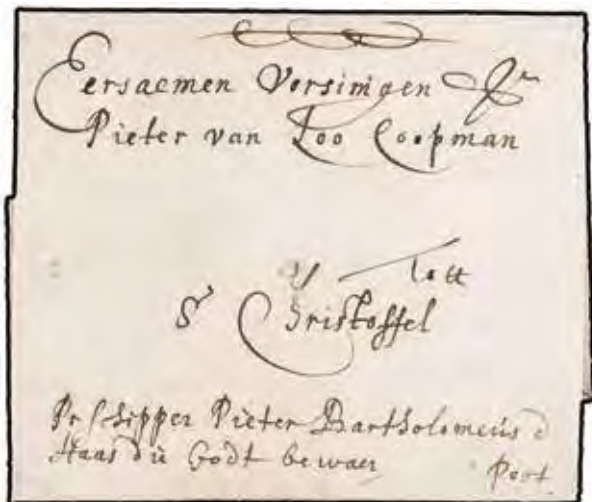 Eersaemen Vorsinigen Sr
Pieter van Loo Coopman
tott
St Cristoffel
Pr Schipper Pieter Bartholomeus d
Haas die Godt bewaer
Port